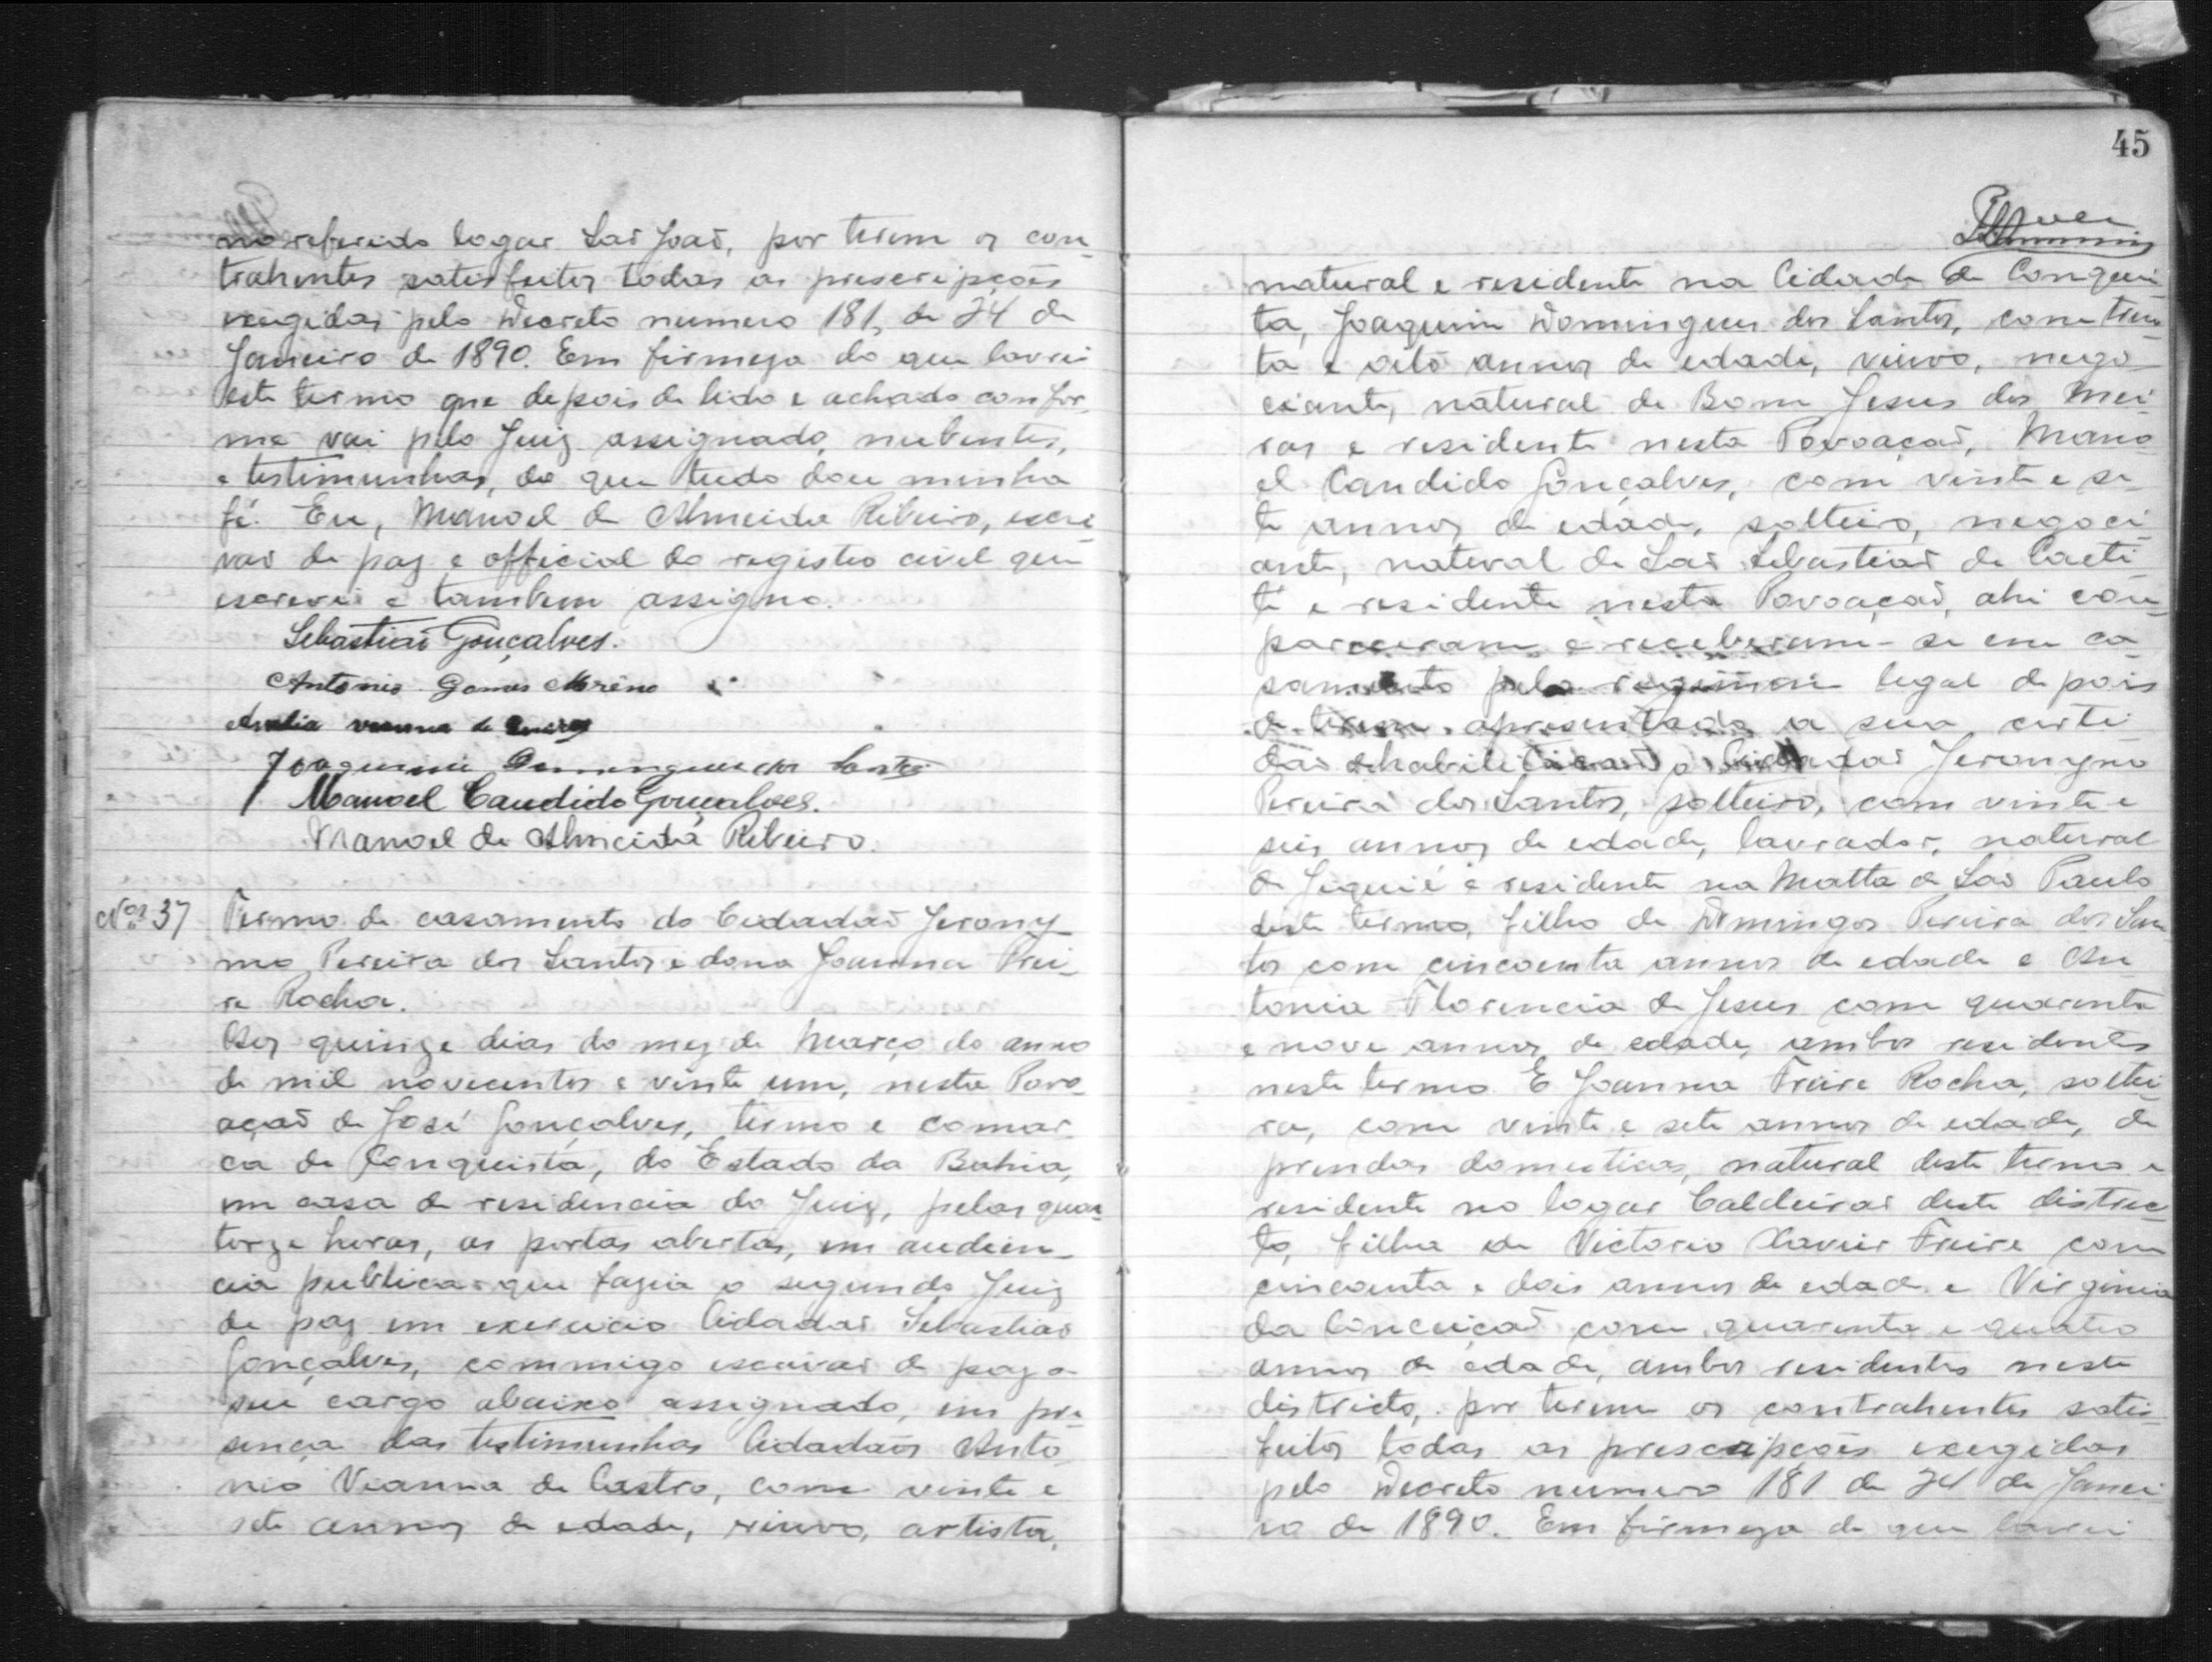 no referido logar Saõ Joaõ, por terem os con-
trahentes satisfeitos todas as prescripções
exegidas pelo Decreto numero 181, de 24 de
Janeiro de 1890. Em firmeza do que lavrei
este termo que depois de lido e achado confor-
me vai pelo Juiz assignado, nubentes,
e testimunhas, do que tudo dou minha
fé. Eu, Manoel de Almeida Ribeiro, escri-
vaõ de paz e official do registro civel que
escrevi e tambem assigno.
Sebastiaõ Gonçalves.
Antonio Gomes Moreno
Joaquim Domingues dos Santos
Manoel Candido Gonçalves.
Manoel de Almeida Ribeiro.
Nº 37 Termo de casamento do Cidadaõ Jerony-
mo Pereira dos Santos e dona Joanna Frei-
re Rocha.
Aos quinze dias do mez de Março do anno
de mil novecentos e vinte um, nesta Povo-
açaõ de José Gonçalves, termo e comar-
ca de Conquista, do Estado da Bahia,
em casa de residencia do Juiz, pelas qua-
torze horas, as portas abertas, em audien-
cia publica que fazia o segundo Juiz
de paz em exercicio Cidadaõ Sebastiaõ
Gonçalves, commigo escrivaõ de paz a
seu cargo abaixo assignado, em pre-
sença das testimunhas Cidadaõs Anto-
nio Vianna de Castro, com vinte e
sete annos de edade, viuvo, artista,
45
natural e residente na Cidade de Conquis-
ta, Joaquim Domingues dos Santos, com trin-
ta e oito annos de edade, viuvo, nego-
ciante, natural de Bom Jesus dos Mei-
ras e residente nesta Povoaçaõ, Mano-
el Candido Gonçalves, com vinte e se-
te annos de edade, solteiro, negoci-
ante, natural de Saõ Sebastiaõ de Caeti-
té e residente nesta Povoaçaõ, ahi com-
pareceram e receberam-se em ca-
samento pelo regimen legal depois
de terem apresentado a sua certi-
daõ de habilitaçaõ o Cidadaõ Jeronymo
Pereira dos Santos, solteiro, com vinte e
seis annos de edade, lavrador, natural
de Jiquié e residente na Matta de Saõ Paulo
deste termo, filho de Domingos Pereira dos San-
tos com cincoenta annos de edade e An-
tonia Florencia de Jesus com quarenta
e nove annos de edade, ambos residentes
neste termo. E Joanna Freire Rocha, soltei-
ra, com vinte e sete annos de edade, de
prendas domesticas, natural deste termo e
residente no logar Caldeiraõ deste distric-
to, filha de Victorio Xavier Freire com
cincoenta e dois annos de edade e Virginia
da Conceiçaõ com quarenta e quatro
annos de edade, ambos residentes neste
districto, por terem os contrahentes satis-
feitos todas as prescripções exegidas
pelo Decreto numero 181 de 24 de Janei-
ro de 1890. Em firmeza do que lavrei